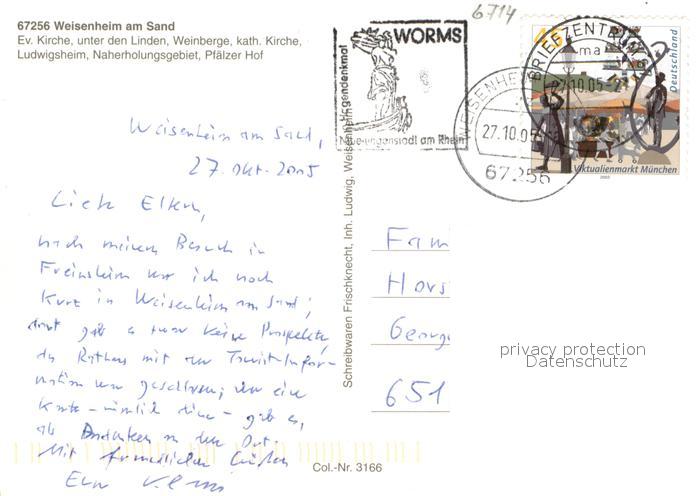 67256 Weisenheim am Sand
Ev. Kirche, unter den Linden, Weinberge, kath. Kirche,
Ludwigsheim, Naherholungsgebiet, Pfälzer Hof
6714
WORMS
Hagendenkmal
Nibelungenstadt am Rhein
BRIEFZENTRUM
ma
27.10.05-2
WEISENHEIM
27.10.05
67256
Deutschland
Viktualienmarkt München
2003
Weisenheim am Sand,
27. Okt. 2005
Liebe Eltern,
nach meinem Besuch in
Freinsheim war ich noch
kurz in Weisenheim am Sand;
dort gab es zwar keine Prospekte,
das Rathaus mit der Tourist-Infor-
mation war geschlossen; aber eine
Karte – nämlich diese – gab es,
als Andenken an den Ort.
Mit freundlichen Grüßen
Euer
Schreibwaren Frischknecht, Inh. Ludwig, Weisenheim
Fam
Hors
Georg
651
privacy protection
Datenschutz
Col.-Nr. 3166